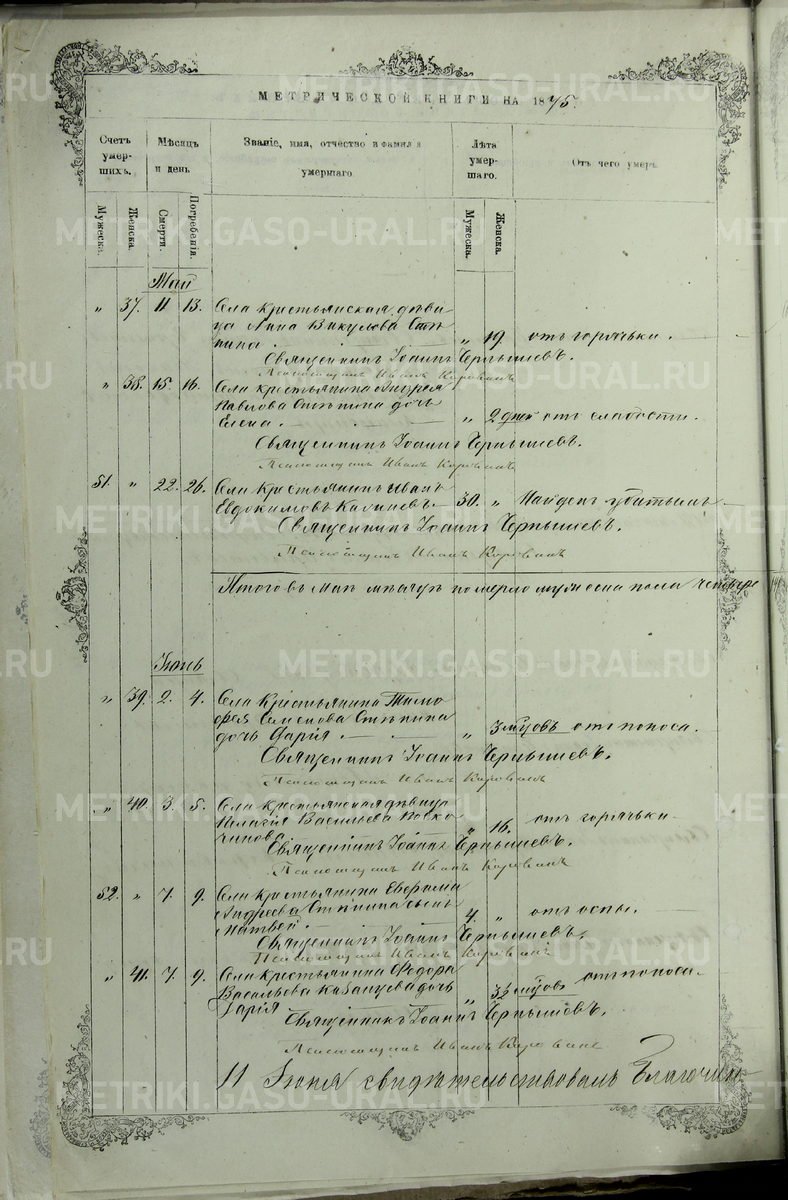 МЕТРИЧЕСКОЙ КНИГИ НА 1875.
Счетъ умершихъ.
Мѣсяцъ и день
Званіе, имя, отчество и фамилія умершаго.
Лѣта умершаго.
Отъ чего умеръ.
Мужеска. Женска. Смерти. Погребенія. Мужеска. Женска.
Май
" 37. 11 13. Села крестьянская дѣви
ца Анна Викулова Стѣ
пина. " 19. отъ горячьки.
Священникъ Іоаннъ Чернышевъ.
Псаломщикъ Иванъ Коровинъ
" 38. 15. 16. Села крестьянина Андрея
Павлова Стѣпина дочь
Елена. " 2 дней отъ слабости.
Священникъ Іоаннъ Чернышевъ.
Псаломщикъ Иванъ Коровинъ
51. " 22. 26. Села Крестьянинъ Иванъ
Евдокимовъ 30. " Найденъ убитымъ
Священникъ Іоаннъ Чернышевъ.
Псаломщикъ Иванъ Коровинъ
Итого въ маѣ мѣсяцѣ померло мужеска пола четыре
Іюнь
" 39. 2. 4. Села Крестьянина Тимо
фея Семенова Стѣпина
дочь Дарія. " 3 мѣцовъ отъ поноса.
Священникъ Іоаннъ Чернышевъ.
Псаломщикъ Иванъ Коровинъ
" 40. 3. 5. Села Крестьянская дѣвица
Пелагія Васильева
" 16. отъ горячьки
Священникъ Іоаннъ Чернышевъ.
Псаломщикъ Иванъ Коровинъ
52. " 7. 9. Села Крестьянина Ефрема
Андреева Стѣпина сынъ
Матвей. 4. " отъ оспы.
Священникъ Іоаннъ Чернышевъ.
Псаломщикъ Иванъ Коровинъ
" 41. 7. 9. Села Крестьянина Федора
Васильева Казанцева дочь
Дарія " 3½ мѣцовъ отъ поноса.
Священникъ Іоаннъ Чернышовъ.
Псаломщикъ Иванъ Коровинъ
11 Іюня свидѣтельствовалъ Благочин
METRIKI.GASO-URAL.RU